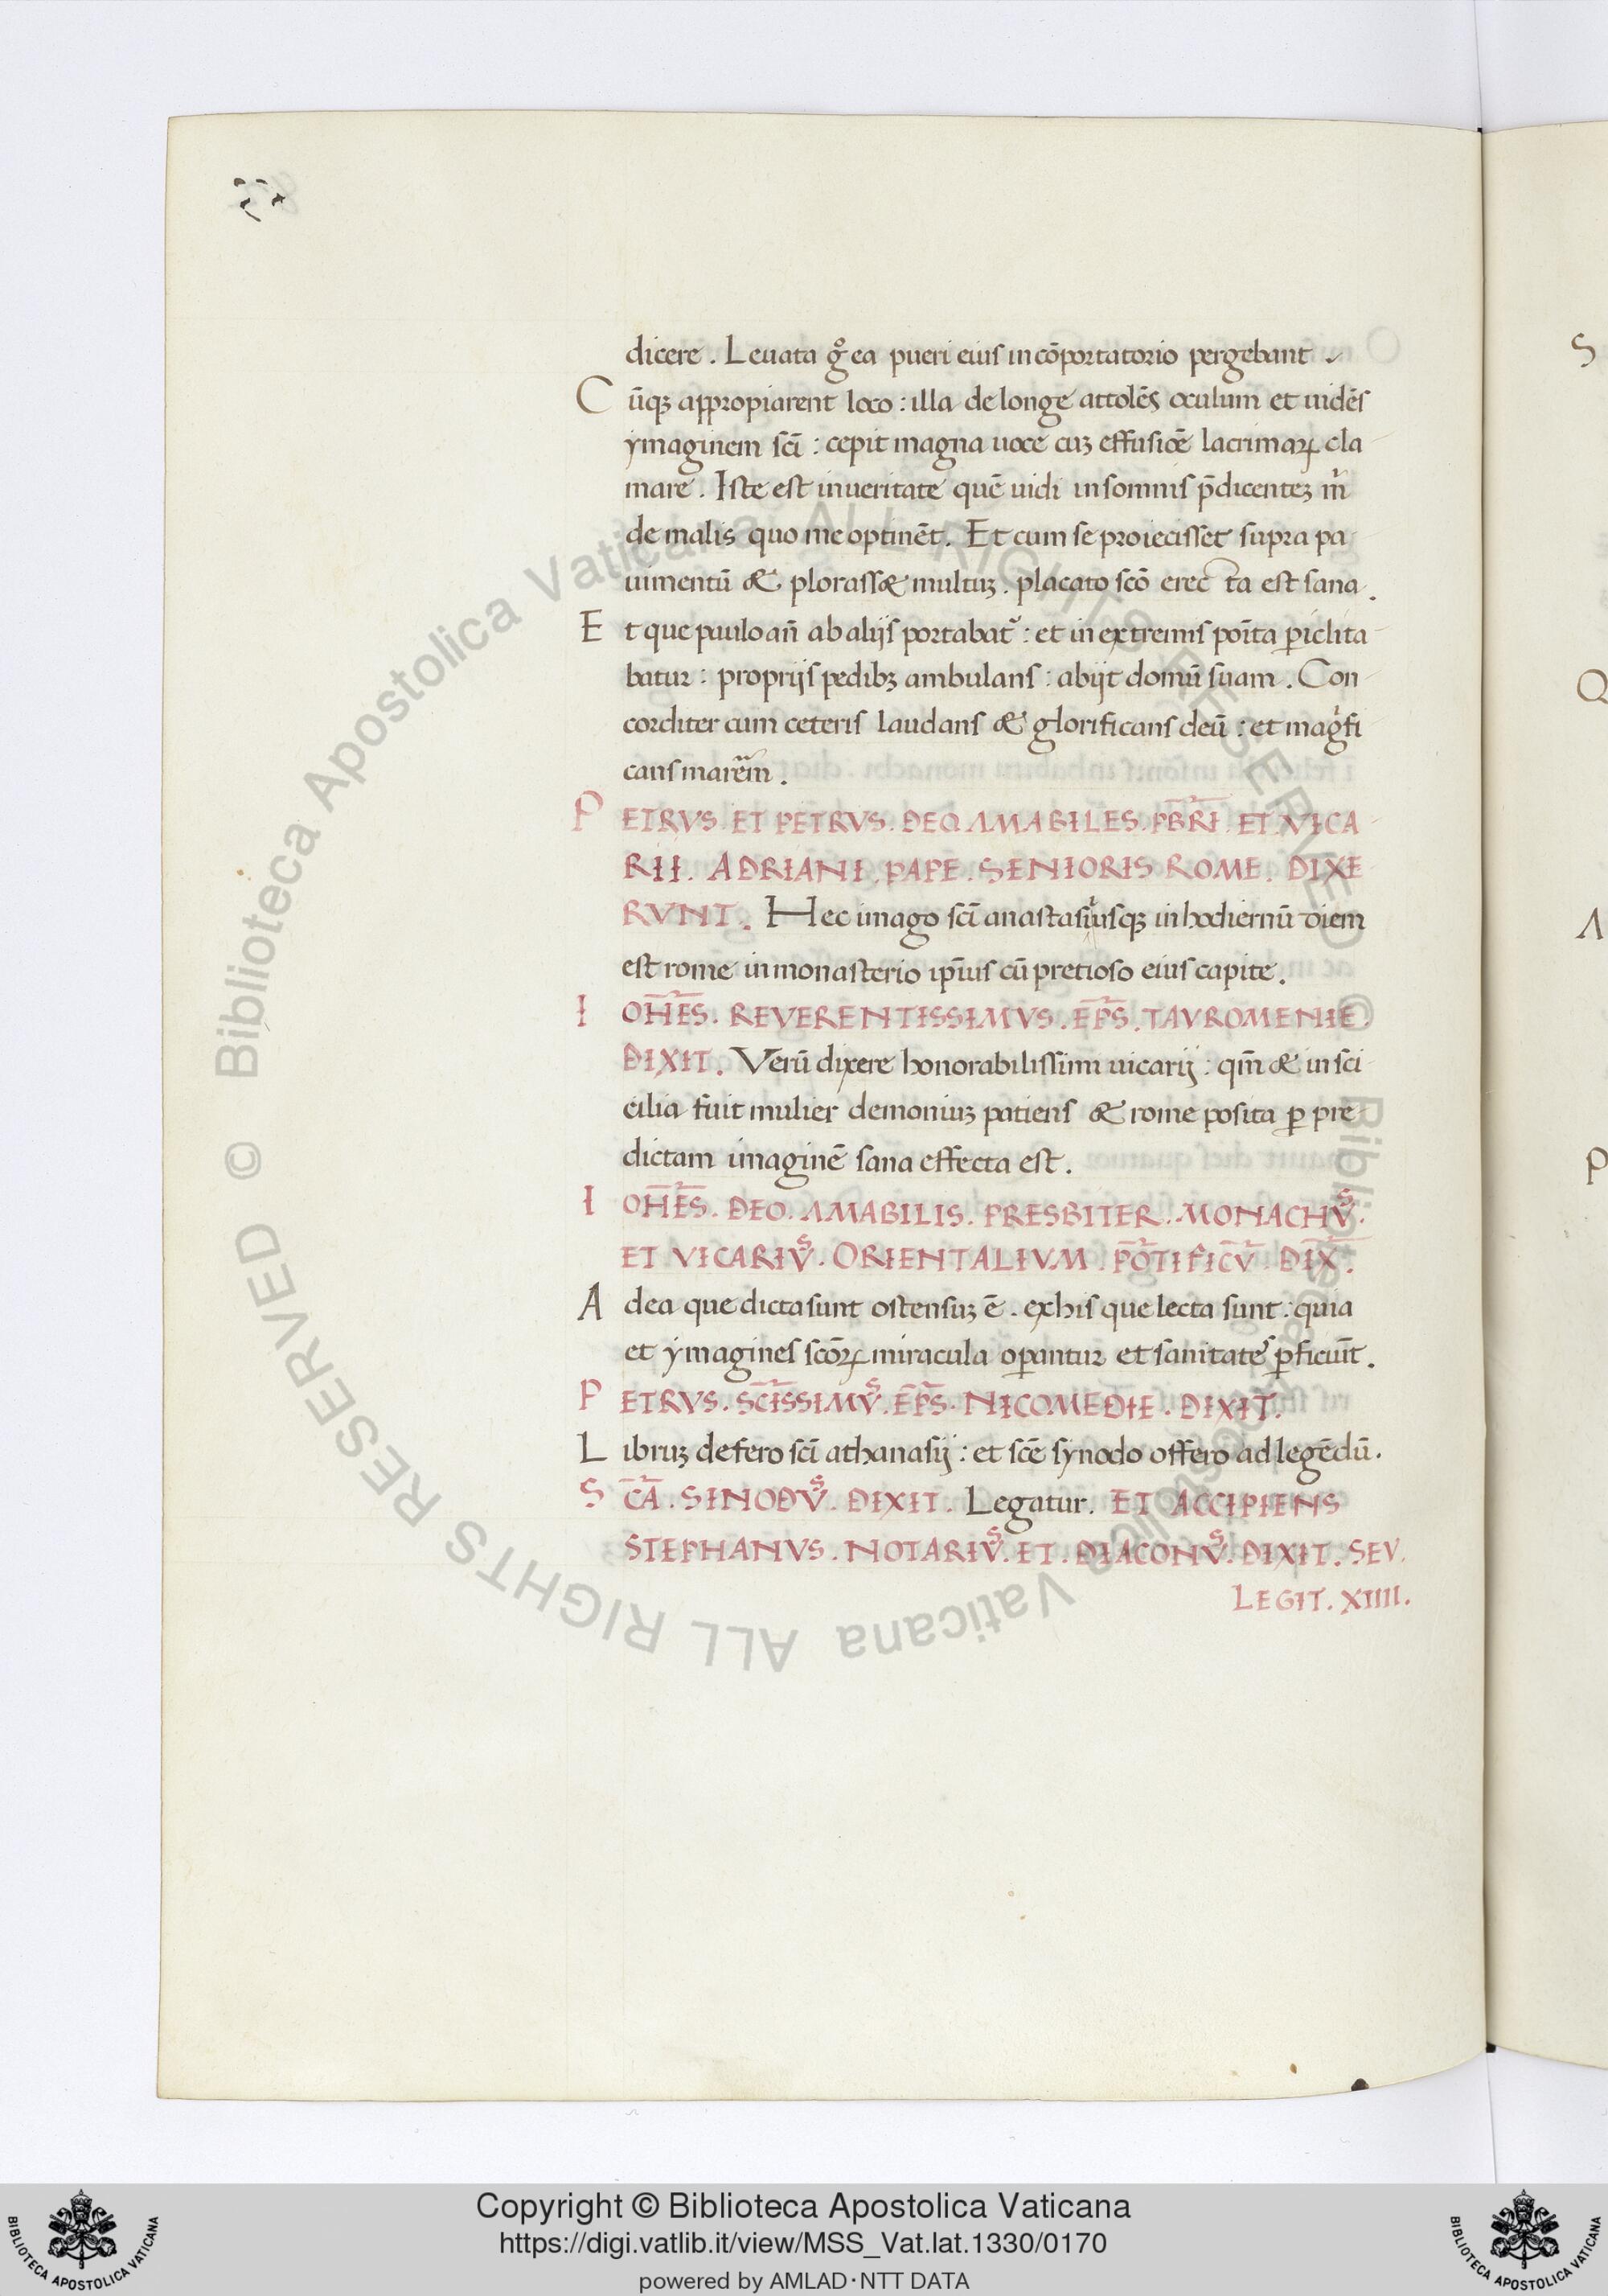 dicere. Leuata g̊ ea pueri eius in cōportatorio pergebant.
Cūqȝ appropiarent loco: illa de longe attolēs oculum et uidēs
ymaginem sc̄i: cepit magna uoce cuȝ effusiōe lacrimaꝝ cla
mare. Iste est in ueritate quē uidi in somnis p̄dicenteȝ m̄
de malis quo me optinēt. Et cum se proiecisset supra pa
uimentū & plorass& multuȝ. placato sc̄o erec ta est sana.
Et que paulo an̄ ab alijs portabat᷑: et in extremis poīta ꝑiclita
batur: proprijs pedibȝ ambulans: abijt domū suam. Con
corditer cum ceteris laudans & glorificans deū: et magͥfi
cans marēm.
PETRVS. ET PETRVS. DEO. AMABILES. PB̄R̄I. ET. VICA
RII. ADRIANI. PAPE. SENIORIS ROME. DIXE
RVNT. Hec imago sc̄i anastasii usqȝ in hodiernū diem
est rome in monasterio ip̄ius cū pretioso eius capite.
IOH̄ES. REVERENTISSIMVS. EP̄S. TAVROMENIE.
DIXIT. Verū dixere honorabilissimi uicarij: qm̄ & in sci
cilia fuit mulier demoniuȝ patiens & rome posita ꝑ pre
dictam imaginē sana effecta est.
IOH̄ES. DEO. AMABILIS. PRESBITER. MONACHVˢ.
ET VICARIVˢ. ORIENTALIVM. PŌTIFICV̄. DIX̄.
Ad ea que dicta sunt ostensuȝ ē. ex his que lecta sunt: quia
et ymagines sc̄oꝝ miracula oꝑantur et sanitateˢ ꝑficiūt.
PETRVS. SC̄ISSIMVˢ. EP̄S. NICOMEDIE. DIXIT.
Libruȝ defero sc̄i athanasij: et sc̄e synodo offero ad legēdū.
SC̄A. SINODVˢ. DIXIT. Legatur. ET ACCIPIENS
STEPHANVS. NOTARIVˢ. ET. DIACONVˢ. DIXIT. SEV.
LEGIT. XIIII.
Copyright © Biblioteca Apostolica Vaticana
https://digi.vatlib.it/view/MSS_Vat.lat.1330/0170
powered by AMLAD·NTT DATA
© Biblioteca Apostolica Vaticana ALL RIGHTS RESERVED
© Biblioteca Apostolica Vaticana ALL RIGHTS RESERVED
BIBLIOTECA APOSTOLICA VATICANA
BIBLIOTECA APOSTOLICA VATICANA
S
Q
A
P